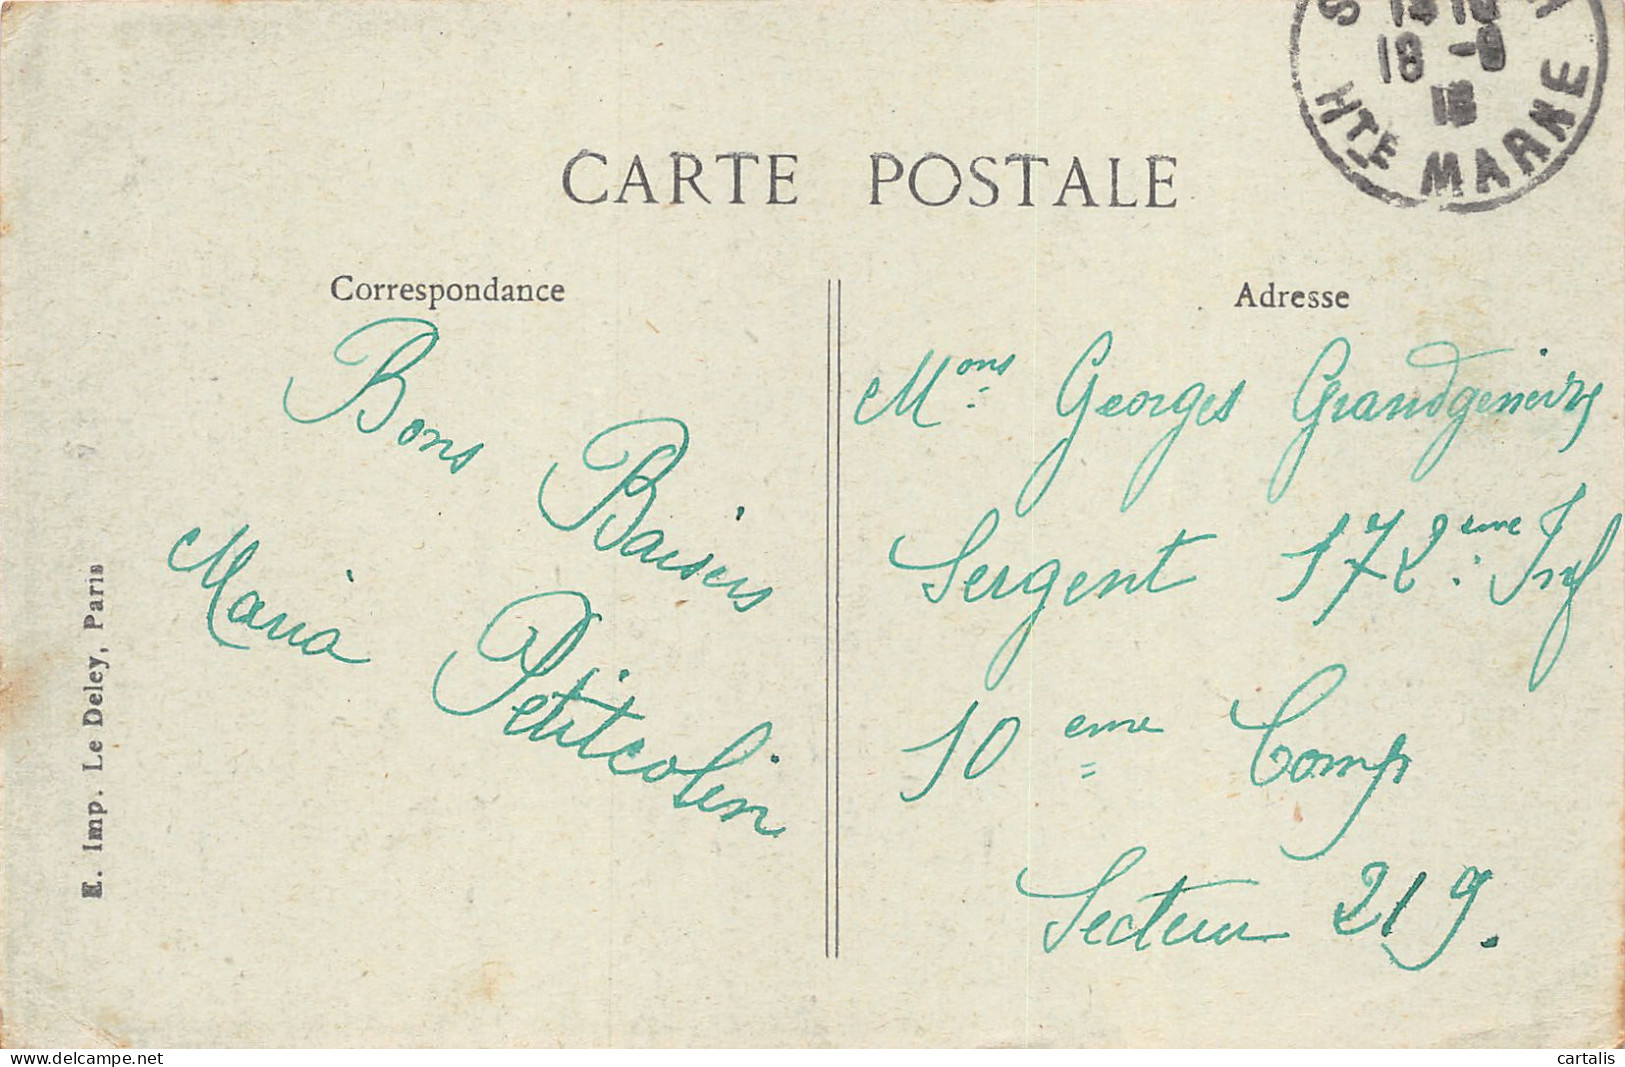 18 -9
18
HTE MARNE
CARTE POSTALE
Correspondance
Bons Baisers
Maria Petitcolin
Adresse
Mons Georges
Sergent 172eme Inf
10 eme Comp
Secteur 219.
E. Imp. Le Deley, Paris
delcampe.net
cartalis